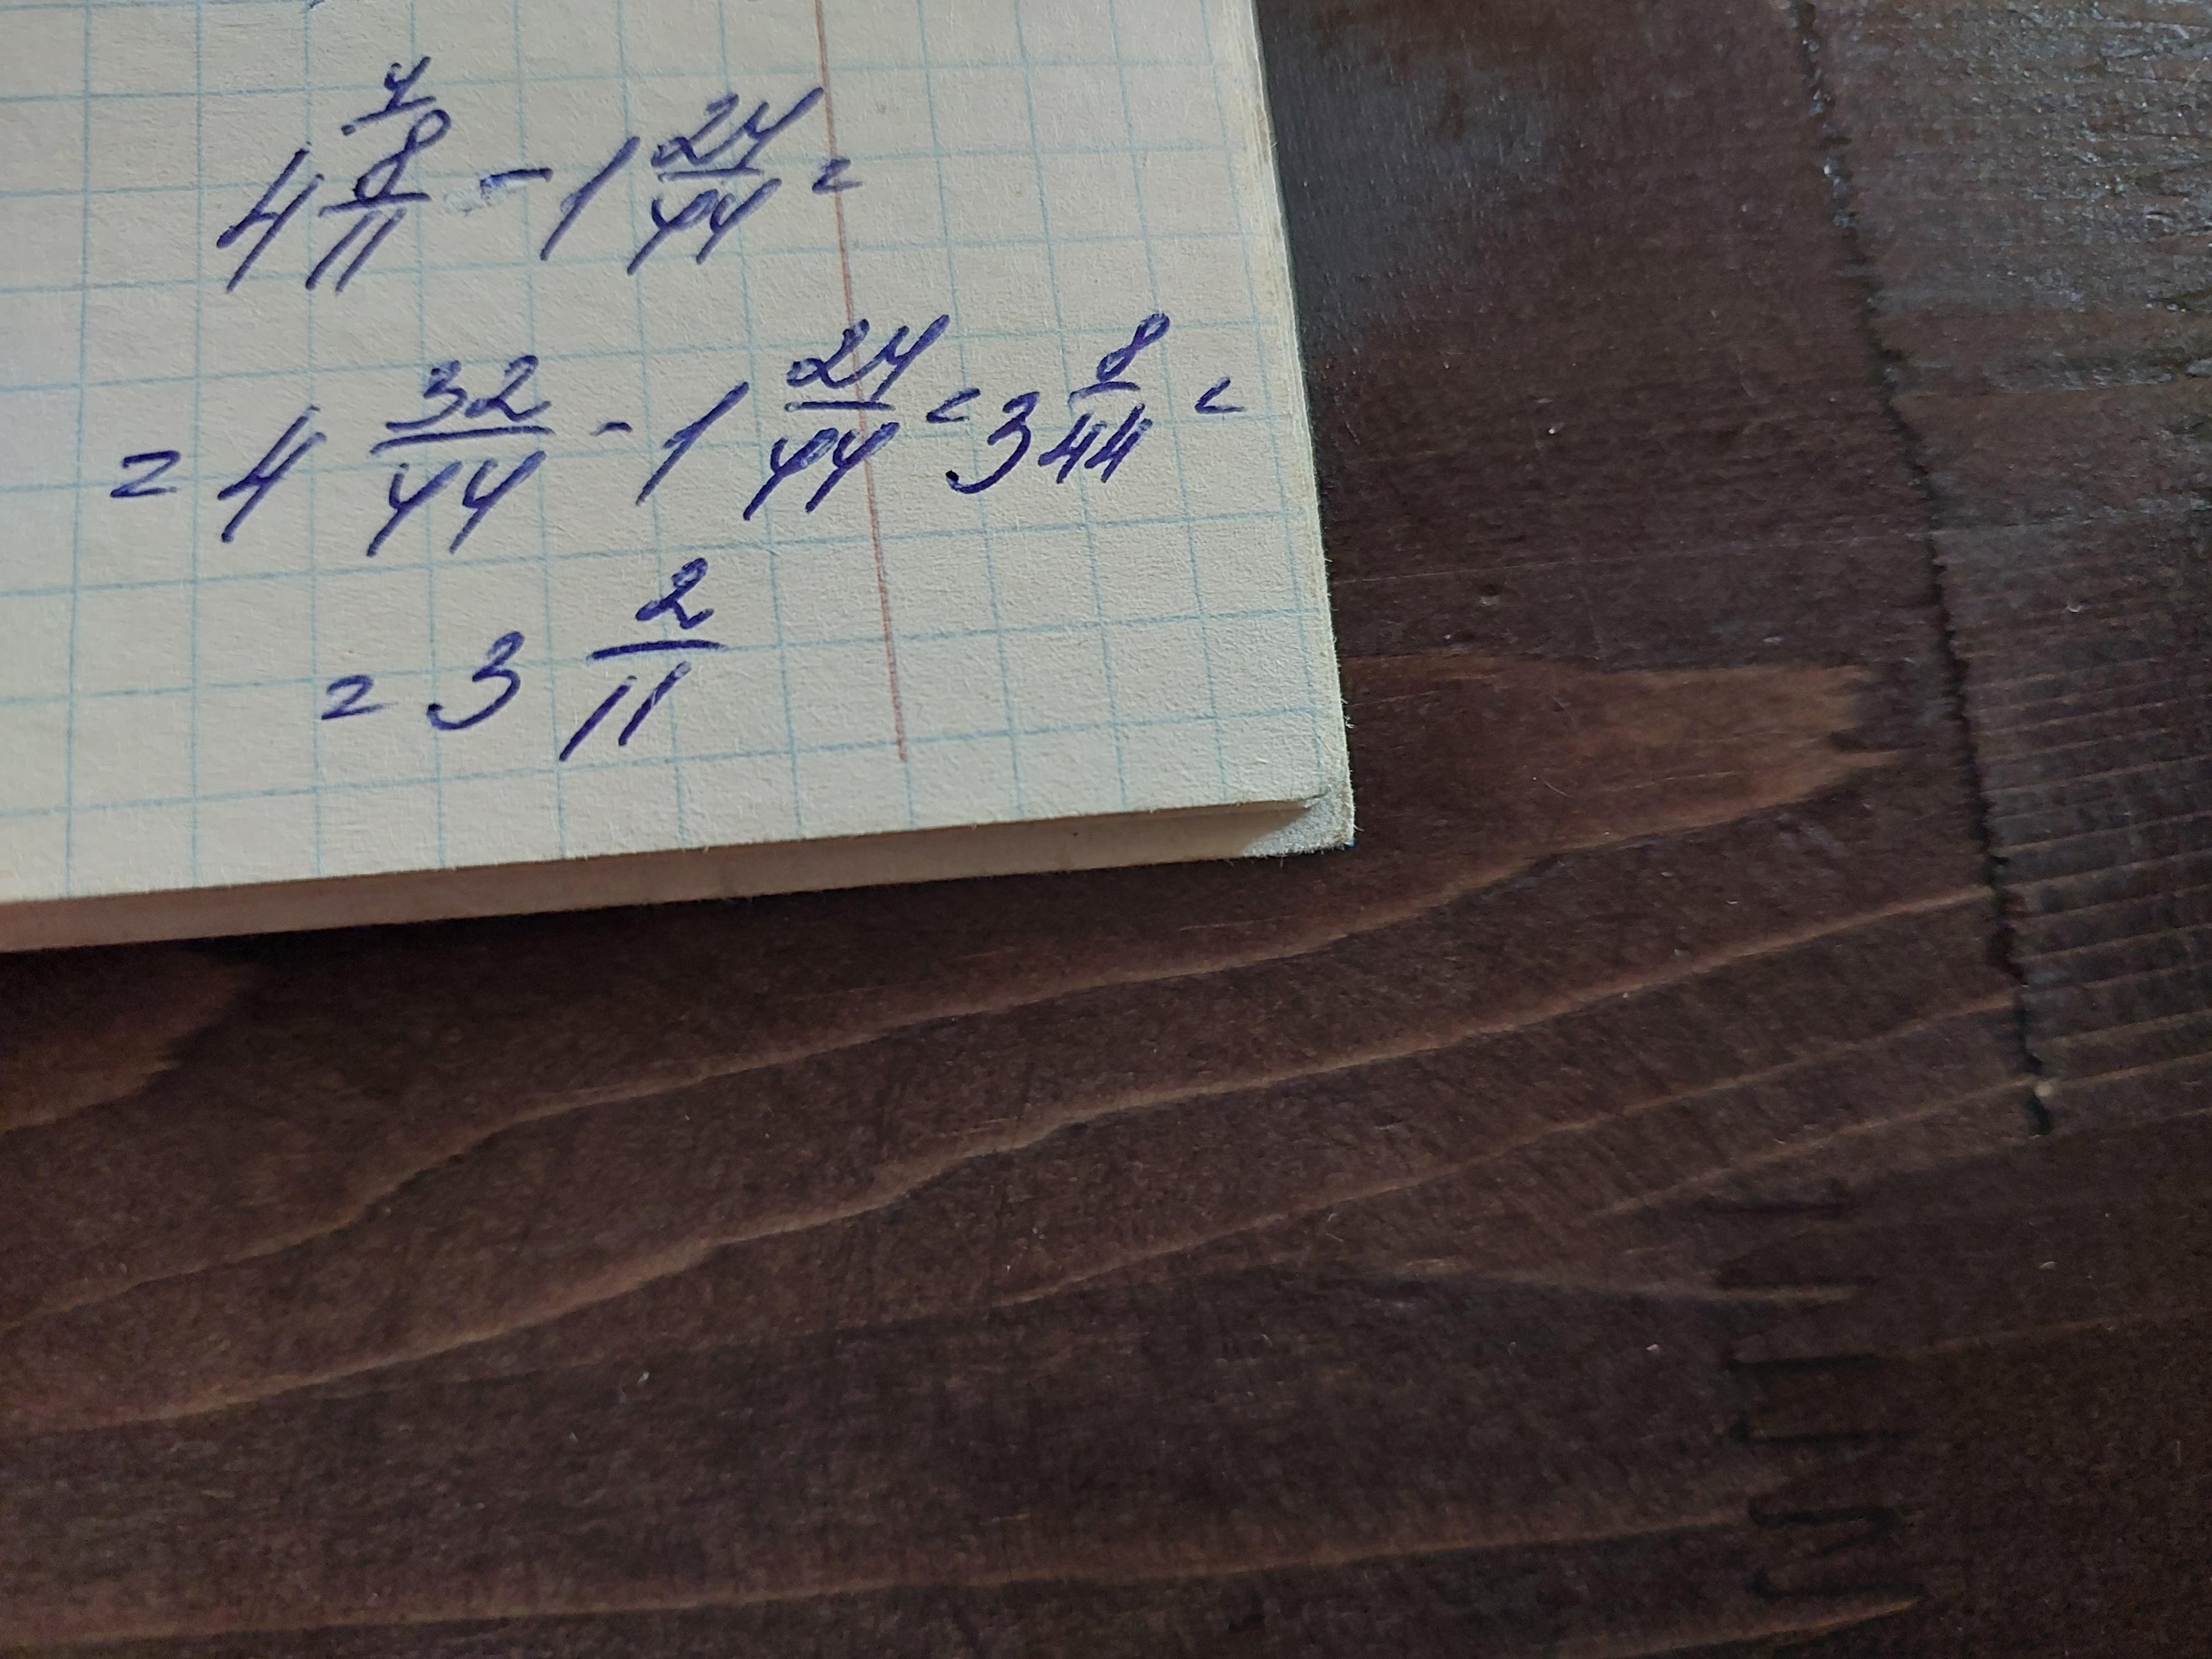 4 8/11 ⁴ - 1 24/44 =
= 4 32/44 - 1 24/44 = 3 8/44 =
= 3 2/11